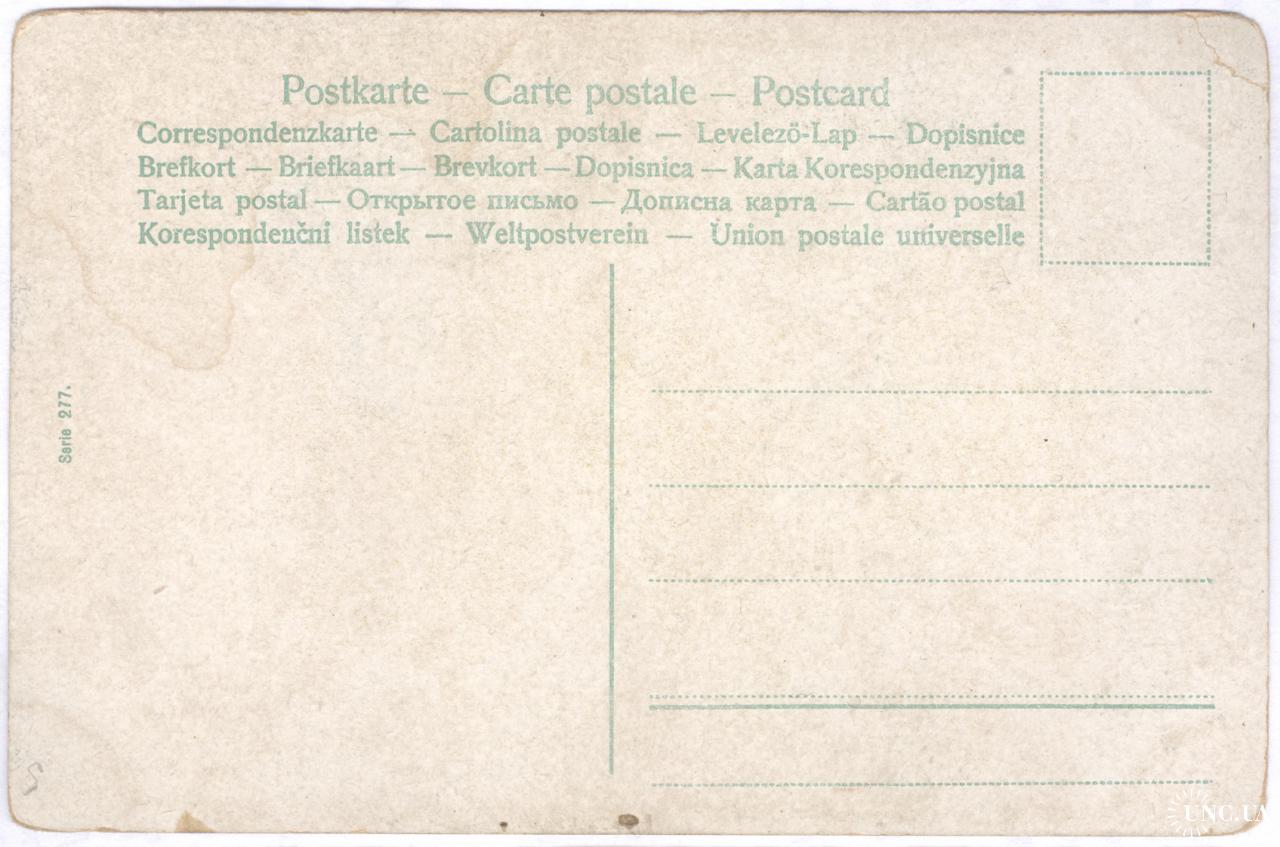 Postkarte — Carte postale — Postcard
Correspondenzkarte — Cartolina postale — Levelező-Lap — Dopisnice
Brefkort — Briefkaart — Brevkort — Dopisnica — Karta Korespondenzyjna
Tarjeta postal — Открытое письмо — Дописна карта — Cartão postal
Korespondenčni listek — Weltpostverein — Union postale universelle
Serie 277.
5
UNC.UA